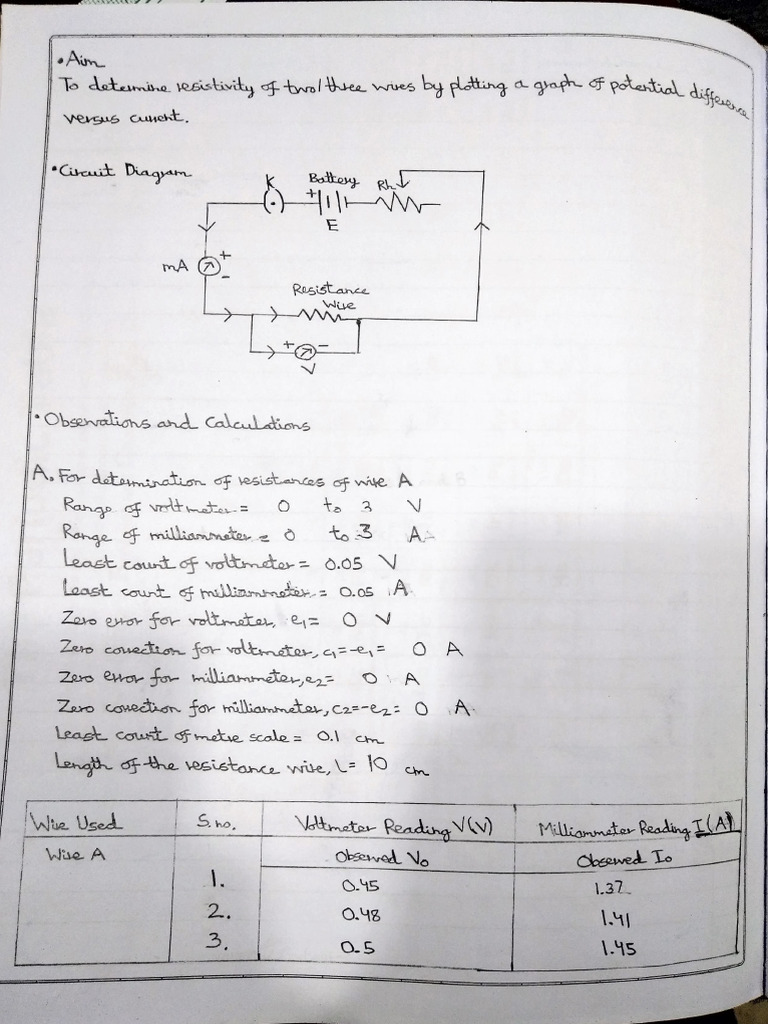 • Aim
To determine resistivity of two/three wires by plotting a graph of potential difference
versus current.
• Circuit Diagram
K
Battery
Rh
+
E
mA
+
-
Resistance
Wire
+ -
V
• Observations and Calculations
A. For determination of resistances of wire A
Range of voltmeter = 0 to 3 V
Range of milliammeter = 0 to 3 A
Least count of voltmeter = 0.05 V
Least count of milliammeter = 0.05 A
Zero error for voltmeter, e1 = 0 V
Zero correction for voltmeter, c1=-e1 = 0 A
Zero error for milliammeter, e2 = 0 A
Zero correction for milliammeter, c2=-e2 = 0 A
Least count of metre scale = 0.1 cm
Length of the resistance wire, l = 10 cm
Wire Used S.no. Voltmeter Reading V(V) Milliammeter Reading I(A)
Wire A Observed Vo Observed Io
1. 0.45 1.37
2. 0.48 1.41
3. 0.5 1.45